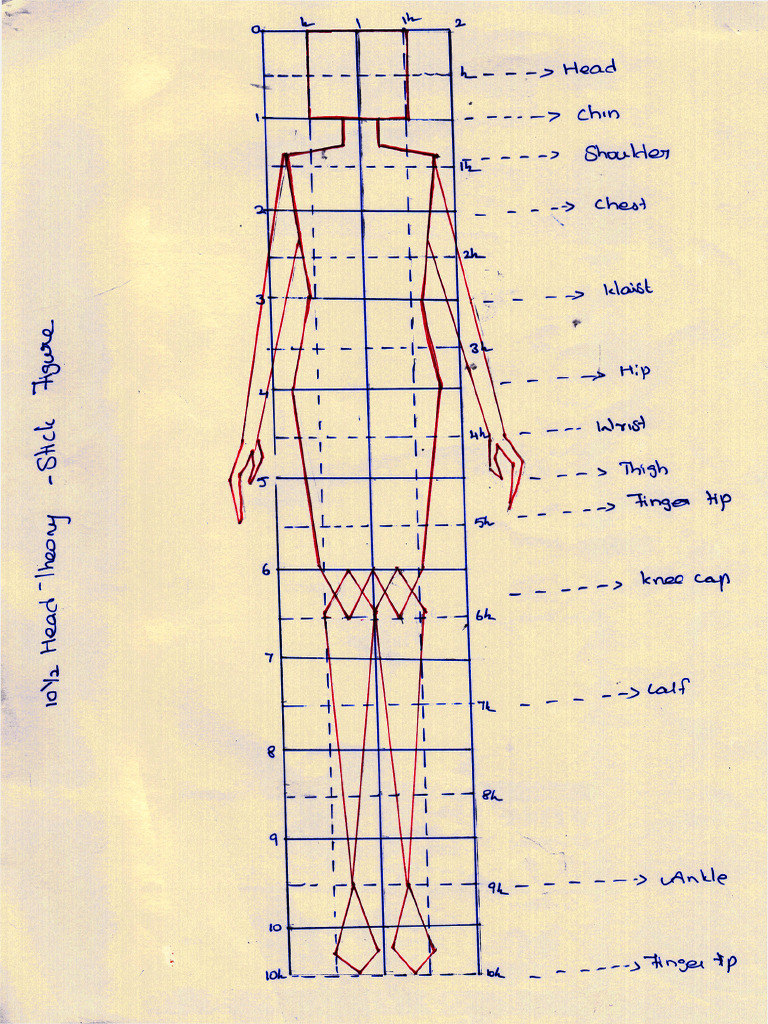 0 ½ 1 1½ 2
½ Head
1 Chin
1½ Shoulder
2 Chest
2½
3 Waist
3½
Hip
4
4½ Wrist
Thigh
5
Finger tip
5½
6
Knee cap
6½
7
7½ Calf
8
8½
9
9½ Ankle
10
10½ 10½ Finger tip
10½ Head Theory - Stick Figure